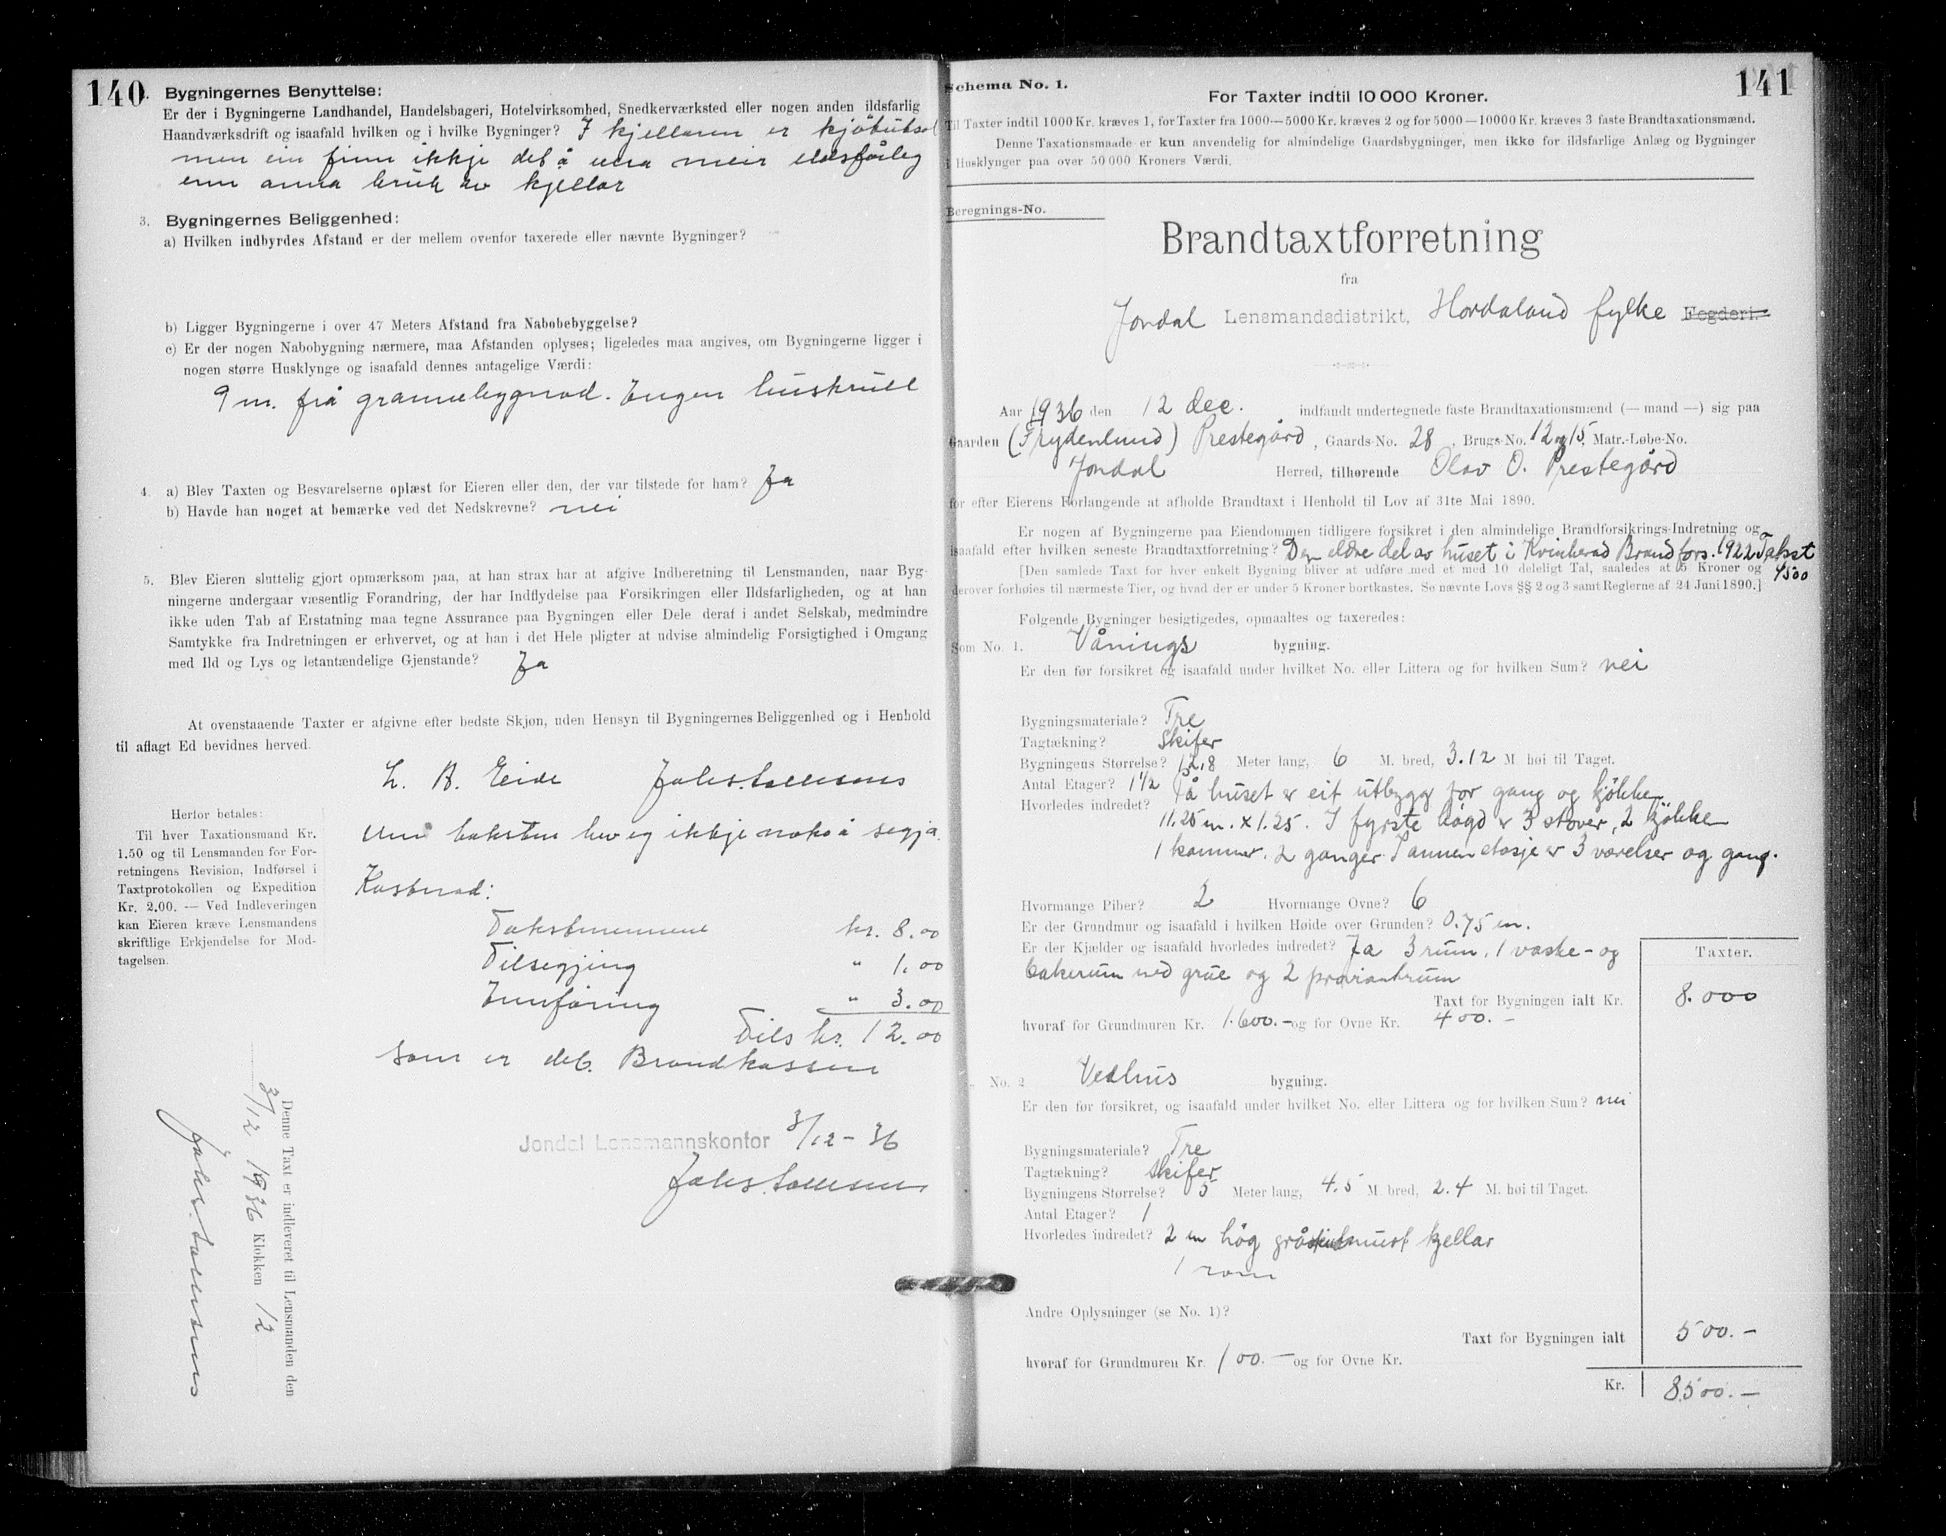 140.
Bygningernes Benyttelse:
Er der i Bygningerne Landhandel, Handelsbageri, Hotelvirksomhed, Snedkerværksted eller nogen anden ildsfarlig
Haandværksdrift og isaafald hvilken og i hvilke Bygninger? I kjellaren er kjøtutsal
men ein finn ikkje det å vera meir eldsfårleg
enn anna bruk av kjellar
3. Bygningernes Beliggenhed:
a) Hvilken indbyrdes Afstand er der mellem ovenfor taxerede eller nævnte Bygninger?
b) Ligger Bygningerne i over 47 Meters Afstand fra Nabobebyggelse?
c) Er der nogen Nabobygning nærmere, maa Afstanden oplyses; ligeledes maa angives, om Bygningerne ligger i
nogen større Husklynge og isaafald dennes antagelige Værdi:
9 m. frå grannebygnad. Ingen huskrull
4. a) Blev Taxten og Besvarelserne oplæst for Eieren eller den, der var tilstede for ham? Ja
b) Havde han noget at bemærke ved det Nedskrevne? nei
5. Blev Eieren sluttelig gjort opmærksom paa, at han strax har at afgive Indberetning til Lensmanden, naar Byg-
ningerne undergaar væsentlig Forandring, der har Indflydelse paa Forsikringen eller Ildsfarligheden, og at han
ikke uden Tab af Erstatning maa tegne Assurance paa Bygningen eller Dele deraf i andet Selskab, medmindre
Samtykke fra Indretningen er erhvervet, og at han i det Hele pligter at udvise almindelig Forsigtighed i Omgang
med Ild og Lys og letantændelige Gjenstande? Ja
At ovenstaaende Taxter er afgivne efter bedste Skjøn, uden Hensyn til Bygningernes Beliggenhed og i Henhold
til aflagt Ed bevidnes herved.
L. B. Eide
Um taksten hev eg ikkje noko å segja.
Herfor betales:
Til hver Taxationsmand Kr.
1.50 og til Lensmanden for For-
retningens Revision, Indførsel i
Taxtprotokollen og Expedition
Kr. 2.00. — Ved Indleveringen
kan Eieren kræve Lensmandens
skriftlige Erkjendelse for Mod-
tagelsen.
Kostnad:
Takstmennene kr. 8.00
Tilsegjing " 1.00
Innføring " 3.00
Tils kr. 12.00
som er deb. Brandkassen
Jondal Lensmannskontor 3/12 - 36
Denne Taxt er indleveret til Lensmanden den
3/12 1936 Klokken 12
141
Schema No. 1.
For Taxter indtil 10 000 Kroner.
Til Taxter indtil 1000 Kr. kræves 1, for Taxter fra 1000—5000 Kr. kræves 2 og for 5000—10000 Kr. kræves 3 faste Brandtaxationsmænd.
Denne Taxationsmaade er kun anvendelig for almindelige Gaardsbygninger, men ikke for ildsfarlige Anlæg og Bygninger
i Husklynger paa over 50 000 Kroners Værdi.
Beregnings-No.
Brandtaxtforretning
fra
Jondal Lensmandsdistrikt, Hordaland fylke Fogderi.
Aar 1936 den 12 dec. indfandt undertegnede faste Brandtaxationsmænd (— mand —) sig paa
Gaarden (Frydenlund) Prestegård, Gaards-No. 28, Brugs-No. 12 og 15. Matr.-Løbe-No.
Jondal Herred, tilhørende Olav O. Prestegård
for efter Eierens Forlangende at afholde Brandtaxt i Henhold til Lov af 31te Mai 1890.
Er nogen af Bygningerne paa Eiendommen tidligere forsikret i den almindelige Brandforsikrings-Indretning og
isaafald efter hvilken seneste Brandtaxtforretning? Den eldre del av huset i Kvinherad Brandfors. 1922 Takst
4500
[Den samlede Taxt for hver enkelt Bygning bliver at udføre med et med 10 deleligt Tal, saaledes at 5 Kroner og
derover forhøies til nærmeste Tier, og hvad der er under 5 Kroner bortkastes. Se nævnte Lovs §§ 2 og 3 samt Reglerne af 24 Juni 1890.]
Følgende Bygninger besigtigedes, opmaaltes og taxeredes:
Som No. 1. Vånings bygning.
Er den før forsikret og isaafald under hvilket No. eller Littera og for hvilken Sum? nei
Bygningsmateriale? Tre
Tagtækning? Skifer
Bygningens Størrelse? 12.8 Meter lang, 6 M. bred, 3.12 M høi til Taget.
Antal Etager? 1 1/2 På huset er eit utbygg for gang og kjøkken
Hvorledes indredet? 11.25 m. x 1.25. I fyrste høgd er 3 stover, 2 kjøkken
1 kammer. 2 ganger. I annen etasje er 3 værelser og gang.
Hvormange Piber? 2 Hvormange Ovne? 6
Er der Grundmur og isaafald i hvilken Høide over Grunden? 0.75 m.
Er der Kjælder og isaafald hvorledes indredet? Ja 3 rum, 1 vaske- og
bakerum med grue og 2 proviantrum
Taxter.
Taxt for Bygningen ialt Kr. 8.000
hvoraf for Grundmuren Kr. 1.600.- og for Ovne Kr. 400.-
No. 2 Vedhus bygning.
Er den før forsikret, og isaafald under hvilket No. eller Littera og for hvilken Sum? nei
Bygningsmateriale? Tre
Tagtækning? Skifer
Bygningens Størrelse? 5 Meter lang, 4.5 M. bred, 2.4 M. høi til Taget.
Antal Etager? 1
Hvorledes indredet? 2 m høg gråsteinsmurt kjellar
1 rom
Andre Oplysninger (se No. 1)?
Taxt for Bygningen ialt 500.-
hvoraf for Grundmuren Kr. 100.- og for Ovne Kr.
Kr. 8500.-